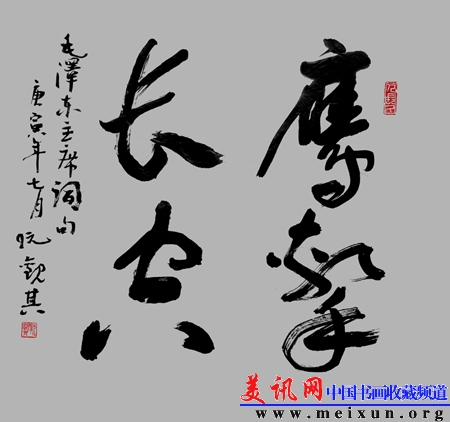 鷹擊
长空
毛澤东主席詞句
庚寅年七月阮觀其
美讯网中国书画收藏频道
www.meixun.org